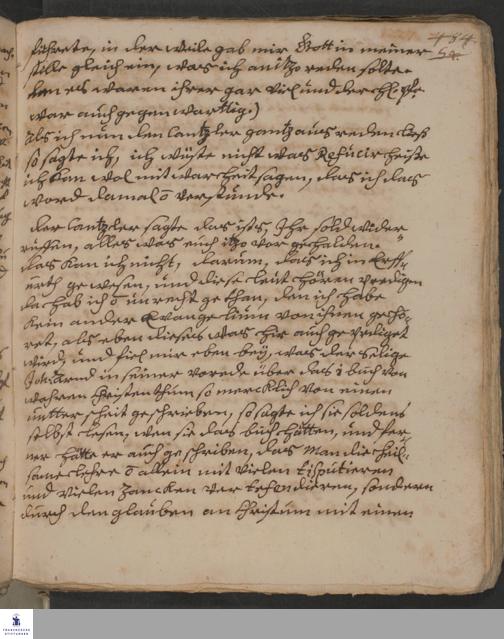 484
50
führete, in der weile gab mir Gott in meiner
stille gleich ein, was ich anitzo reden solte
den es waren ihrer gar viel und der
war auch gegenwärttig.)
als ich nun den Cantzler gantz aus reden ließ
so sagte ich, ich wüste nicht was Refücir heiße
ich kan wol mit warheit sagen, das ich das
word damal õ verstunde.
der Cantzler sagte das ists, Ihr sold wider
ruffen, alles was euch itzo vor gehalden.
das kan ich nicht, darum, das ich in Erff-
urth gewesen, und diese leut hören predigen
da hab ich õ unrecht gethan, den ich habe
kein ander Evangelium von ihnen gehö-
ret, als eben dieses was hir auch geprediget
wird, und fiel mir eben bey, was der selige
Joh: Arnd in seiner vorede über das 1 buch von
wahren Christenthum so mercklich von einen
unterscheit geschrieben, so sagte ich sie soldens
selbst lesen, wen sie das buch hätten, und fer-
ner hätte er auch geschriben, das Man die heil-
same lehre õ allein mit vielen dispütieren
und vielen Zancken ver tefendieren, sondern
durch den glauben an Christum mit einen
FRANCKESCHE
STIFTUNGEN